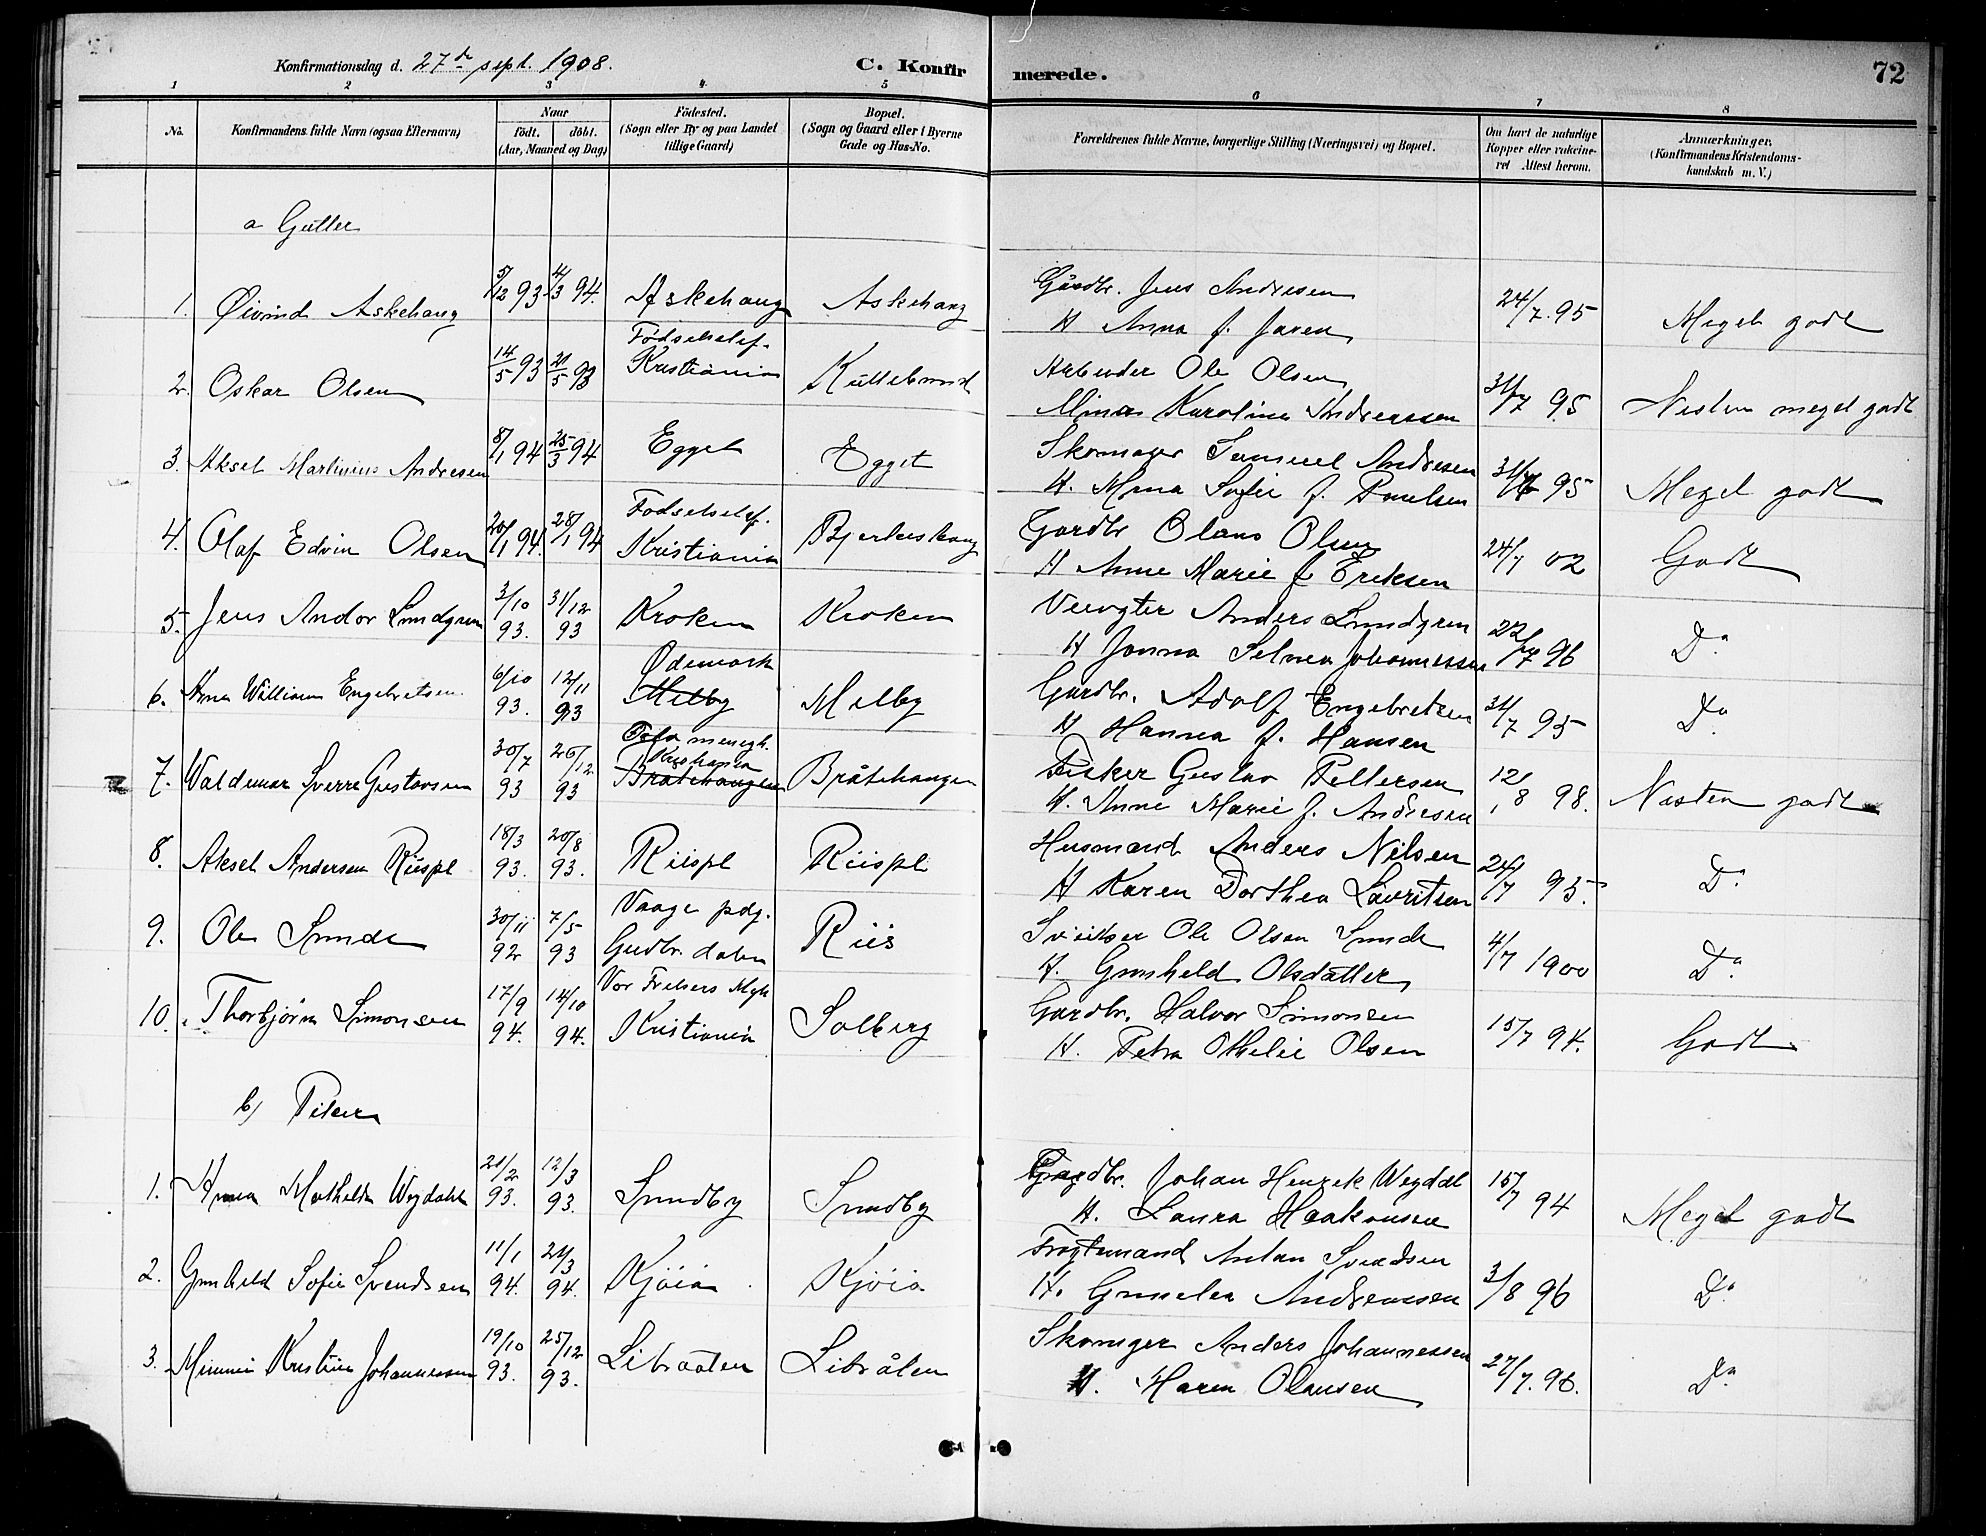 Konfirmationsdag d. 27de sept. 1908.
C. Konfirmerede.
72
1 2 3 4 5 6 7 8
No.
Konfirmandens fulde Navn (ogsaa Efternavn)
Naar
födt. döbt.
(Aar, Maaned og Dag)
Födested.
(Sogn eller By og paa Landet
tillige Gaard)
Bopæl.
(Sogn og Gaard eller i Byerne
Gade og Hus-No.
Forældrenes fulde Navne, borgerlige Stilling (Næringsvei) og Bopæl.
Om havt de naturlige
Kopper eller vakcine-
ret Attest herom.
Anmærkninger.
(Konfirmandens Kristendoms-
kundskab m. V.)
a Gutter
1. Øivind Askehaug 5/12 93 4/3 94. Askehaug Askehaug
Gårdbr. Jens Andresen
H Anna f. Jaren
24/7. 95 Meget godt
2. Oskar Olsen 14/5 93 21/5 93 Födselsstf. Kristiania
Arbeider Ole Olsen
Mina Karoline Andreassen
31/7 95 Nesten meget godt
3. Aksel Martinius Andresen 8/1 94 25/3 94 Egget Egget
Skomager Samuel Andresen
H. Mina Sofie f. Paulsen
95 Meget godt
4. Olaf Edvin Olsen 20/1 94. 28/1 94 Födselsstf. Kristiania Bjerkeshaug
Gardbr Olaus Olsen
H Anne Marie f Eriksen
24/1 02 Godt
5. Jens Andor Lundgren 3/10 93. 31/12 93 Kroken Kroken
Anders Lundgren
H Janna Selma Johannessen
22/7 96 Do
6. William Engebretsen 6/10 93. 12/11 93 Ødemark Melby Melby
Gardbr. Adolf Engebretsen
H Hanna f. Hansen
31/7 95 Do
7. Waldemar Sverre Gustavsen 30/7 93 26/12 93 menigh. Kristiania Bråtehaugen Bråtehaugen
Fisker Gustav Pettersen
H. Anne Marie f. Andresen
12/8 98. Næsten godt
8. Aksel Andersen Riispl 18/3 93. 20/8 93. Riispl Riispl
Husmand Anders Nilsen
H Karen Dorthea Lauritsen
24/7 95. Do
9. Ole Sunde 30/11 92 7/5 93 Vaage pdg. Gudbr. dalen Riis
Sveitser Ole Olsen Sunde
H. Gunhild Olsdatter
4/7 1900 Do
10. Thorbjörn Simonsen 17/9 94. 14/10 94. Vor Frelsers Mgh Kristiania Solberg
Gardbr. Halvor Simonsen
H. Petra Othelie Olsen
15/7 94. Godt
b) Piker
1. Anna Mathilde Wegdahl 21/2 93. 12/3 93. Sundby Sundby
Gardbr. Johan Henrik Wegdal
H. Laura Haakonsen
15/7 94 Meget godt
2. Gunhild Sofie Svendsen 11/1 94. 21/3 94. Kjöia Kjöia
Anton Svendsen
H. Andreassen
3/8 96 Do
3. Minnie Kristine Johannessen 19/10 93. 25/12 93. Libraaten Libråten
Skomager Anders Johannessen
H. Maren Olausen
27/7. 96. Do